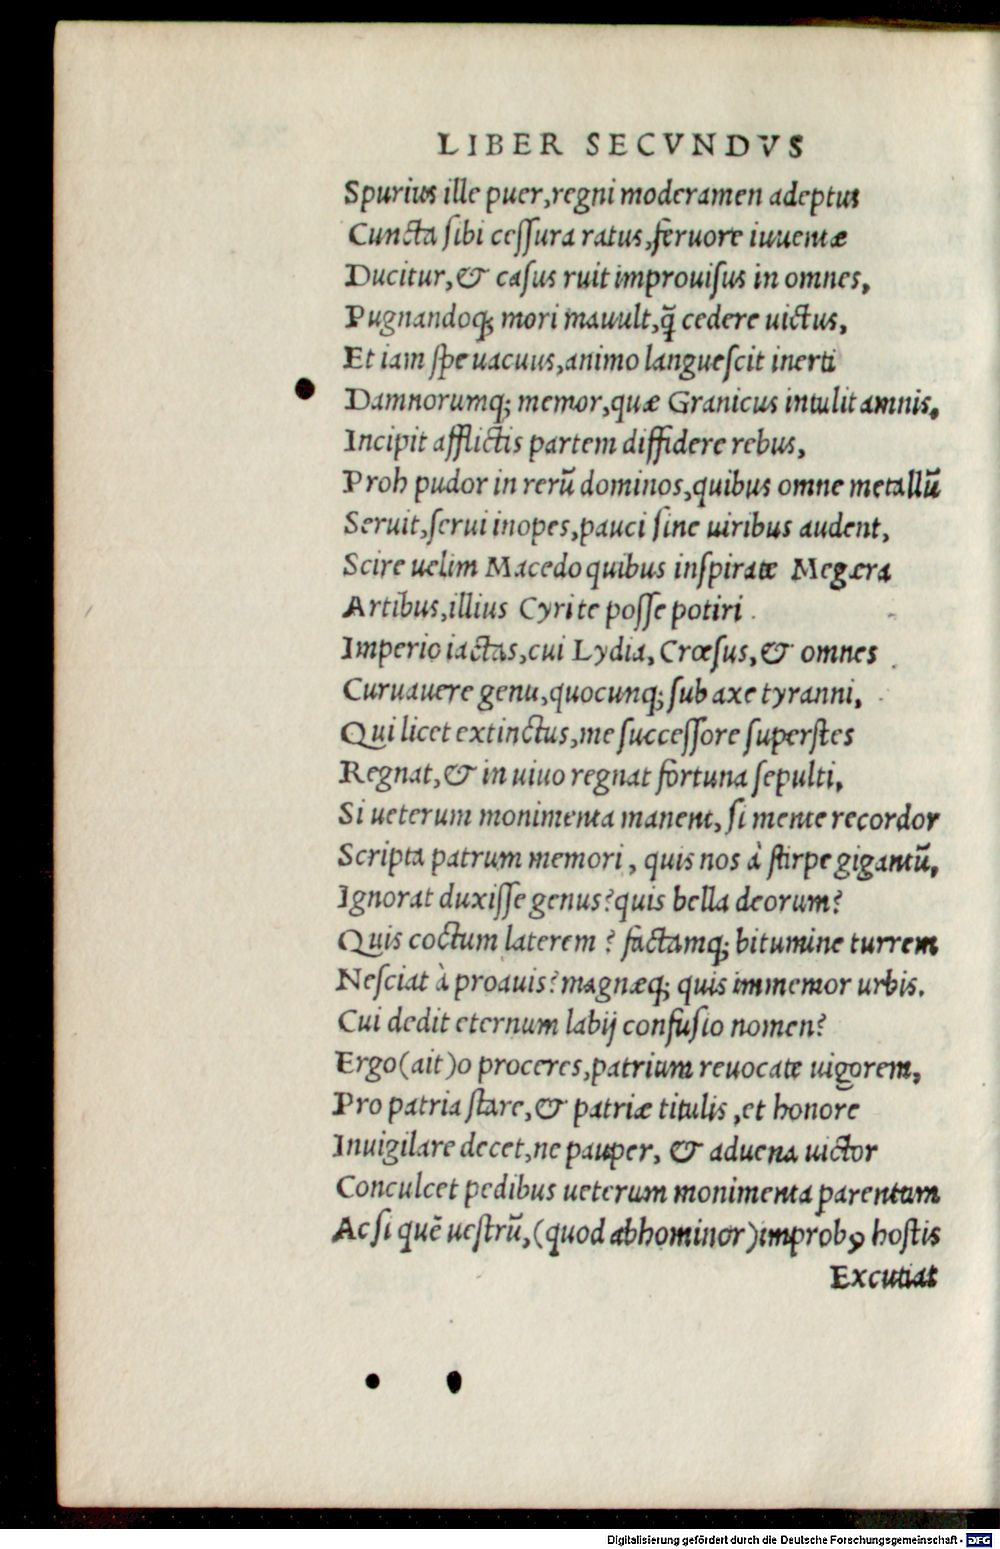 LIBER SECVNDVS
Spurius ille puer,regni moderamen adeptus
Cuncta ſibi ceſſura ratus,feruore iuuentæ
Ducitur,& caſus ruit improuiſus in omnes,
Pugnandoq; mori mauult,q̃ cedere uictus,
Et iam ſpe uacuus,animo langueſcit inerti
Damnorumq; memor,quæ Granicus intulit amnis,
Incipit afflictis partem diffidere rebus,
Proh pudor in rerũ dominos,quibus omne metallũ
Seruit,ſerui inopes,pauci ſine uiribus audent,
Scire uelim Macedo quibus inſpirate Megæra
Artibus,illius Cyri te poſſe potiri
Imperio iactas,cui Lydia, Crœſus,& omnes
Curuauere genu,quocunq; ſub axe tyranni,
Qui licet extinctus,me ſucceſſore ſuperſtes
Regnat,& in uiuo regnat fortuna ſepulti,
Si ueterum monimenta manent, ſi mente recordor
Scripta patrum memori, quis nos à ſtirpe gigantũ,
Ignorat duxiſſe genus?quis bella deorum?
Quis coctum laterem ? factamq; bitumine turrem
Neſciat à proauis?magnæq; quis immemor urbis.
Cui dedit eternum labij confuſio nomen?
Ergo(ait)o proceres,patrium reuocate uigorem,
Pro patria ſtare,& patriæ titulis ,et honore
Inuigilare decet,ne pauper, & aduena uictor
Conculcet pedibus ueterum monimenta parentum
Ac ſi quẽ ueſtrũ,(quod abhominor)improbꝯ hoſtis
Excutiat
Digitalisierung gefördert durch die Deutsche Forschungsgemeinschaft - DFG